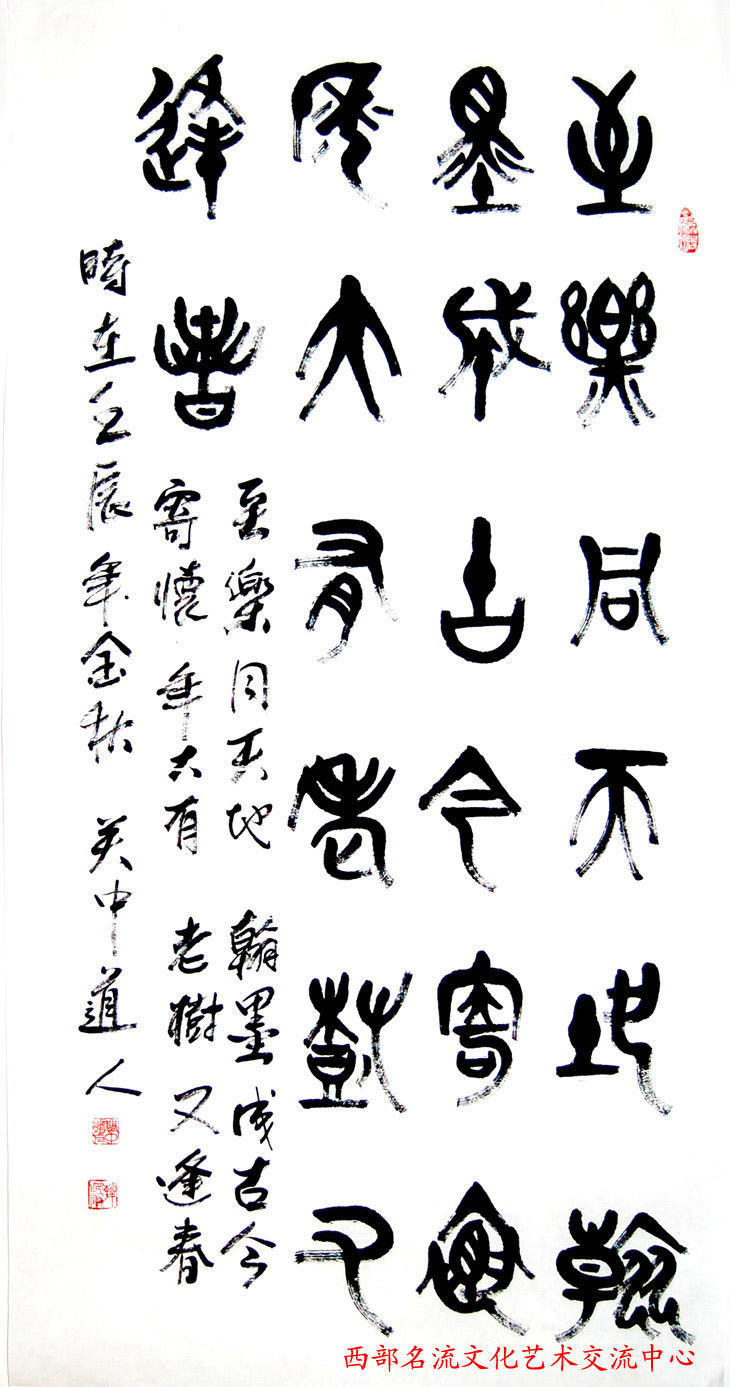 至樂同天地翰
墨成古今寄懷
年大有老樹又
逢春
至樂同天地 翰墨成古今
寄懷年大有 老樹又逢春
時在壬辰年金秋 关中道人
西部名流文化艺术交流中心